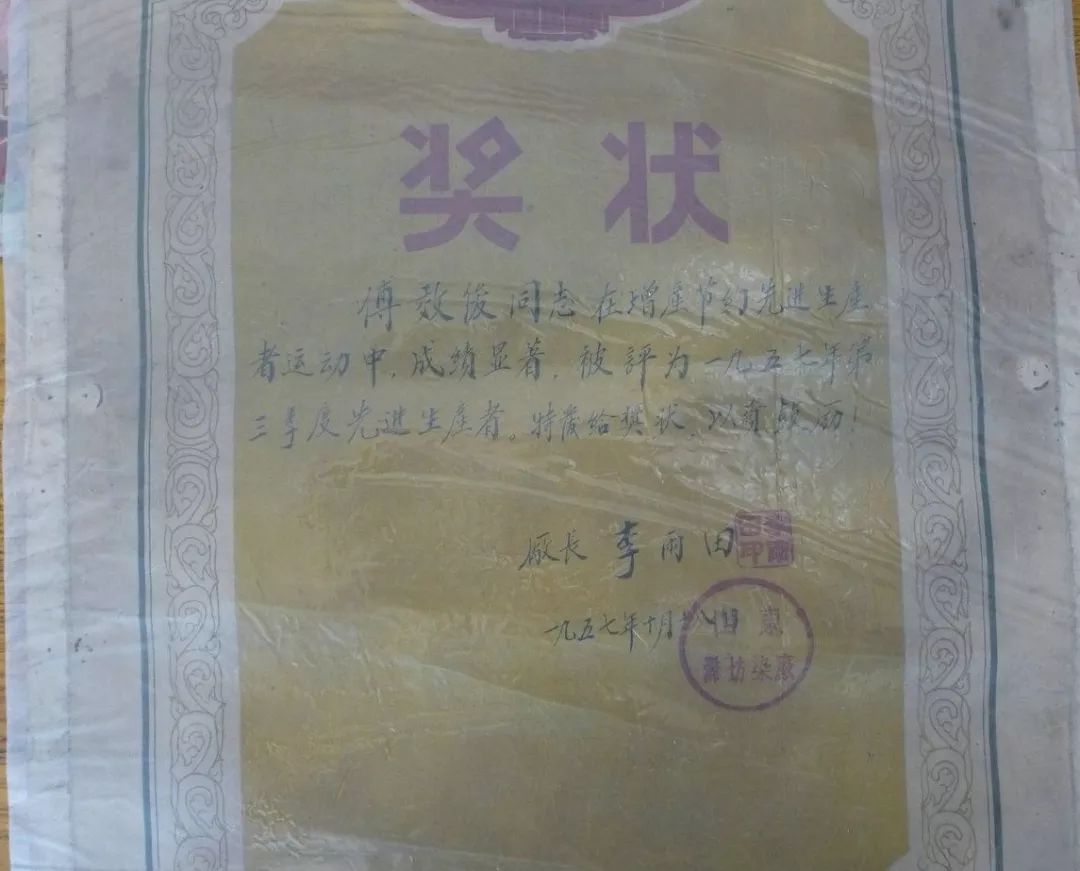 奖状
傅效俊同志在增产节约先进生产
者运动中,成绩显著,被評为一九五七年第
三季度先进生產者。特发给奖状,以资鼓励!
厰長 李雨田
李雨田印
一九五七年十月
濰坊染廠